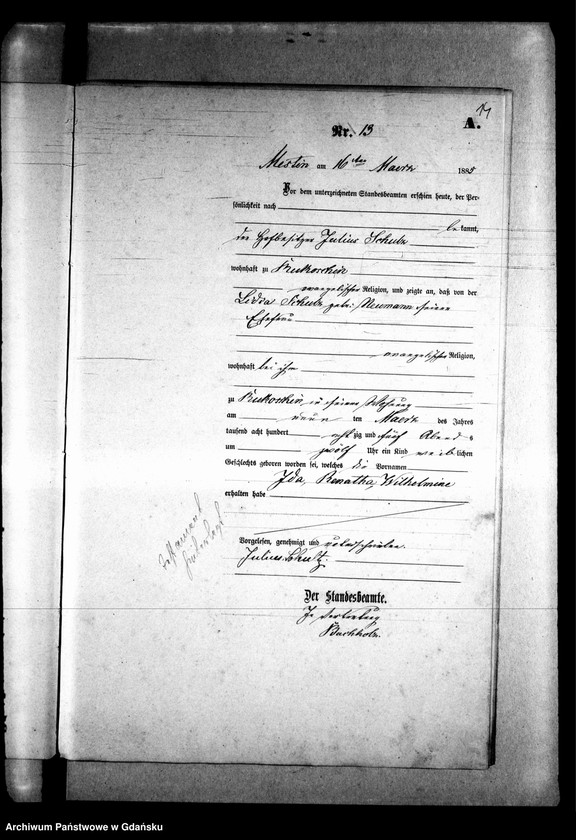 14
A.
Nr. 13
Mestin am 16 ten Maerz 1885
Vor dem unterzeichneten Standesbeamten erschien heute, der Per-
sönlichkeit nach
be kannt,
der Hofbesitzer Julius Schulz
wohnhaft zu
evangelischer Religion, und zeigte an, daß von der
Lidia Schulz geb. Neumann seiner
Ehefrau
evangelischer Religion,
wohnhaft bei ihm
zu in seiner Wohnung
am neun ten Maerz des Jahres
tausend acht hundert acht zig und fünf Abend s
um zwölf Uhr ein Kind weib lichen
Geschlechts geboren worden sei, welches die Vornamen
Ida, Renatha, Wilhelmine
erhalten habe
Vorgelesen, genehmigt und unterschrieben
Julius Schulz.
Der Standesbeamte.
In Vertretung
Buchholz.
Archiwum Państwowe w Gdańsku